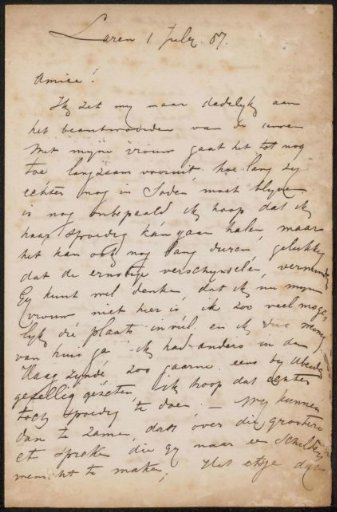 Laren 1 July. 87.
Amice!
Ik zet my maar dadelyk aan
het beantwoorden van de uwe
Met myne vrouw gaat het tot nog
toe langzaam vooruit hoe lang zy
echter nog in Soden moet blyven
is nog onbepaald ik hoop dat ik
haar spoedig kan gaan halen, maar
het kan ook nog lang duren, gelukkig
dat de ernstige verschynselen, verminderd
Gy kunt wel denken dat ik nu myne
vrouw niet hier is, ik zoo veel moge
lyk dié plaats invul en ik dus weinig
van huis ga. ik had anders in den
Haag zynde zoo gaarne eens by
gezellig gezeten, ik hoop dat echter
toch spoedig te doen — wy kunnen
dan te zamen, dat over die grootere
ets spreken die Gy naar een
men wt te maken, Het etsje dat